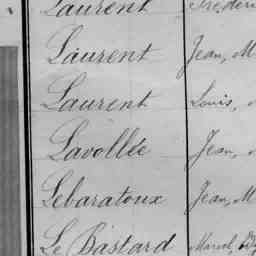 Laurent Fréderi
Laurent Jean, M
Laurent Louis,
Lavollée Jean,
Lebaratoux Jean, M
Le Bastard Marcel,